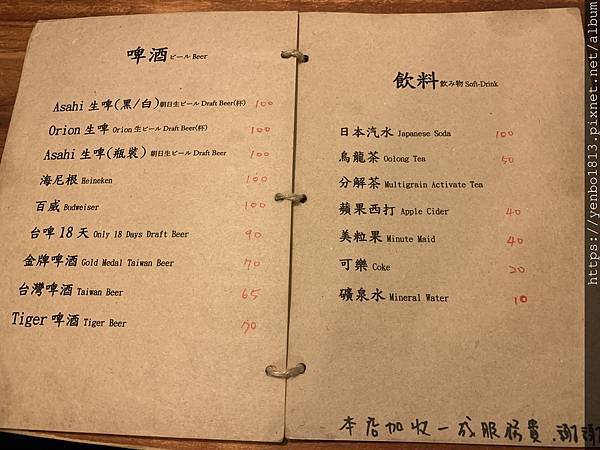 啤酒 ビール Beer
Asahi 生啤(黑/白) 朝日生ビール Draft Beer(杯) 100
Orion 生啤 Orion 生ビール Draft Beer(杯) 100
Asahi 生啤(瓶裝) 朝日生ビール Draft Beer 100
海尼根 Heineken 100
百威 Budweiser 100
台啤 18 天 Only 18 Days Draft Beer 90
金牌啤酒 Gold Medal Taiwan Beer 70
台灣啤酒 Taiwan Beer 65
Tiger 啤酒 Tiger Beer 70
飲料 飲み物 Soft-Drink
日本汽水 Japanese Soda 100
烏龍茶 Oolong Tea 50
分解茶 Multigrain Activate Tea
蘋果西打 Apple Cider 40
美粒果 Minute Maid 40
可樂 Coke 20
礦泉水 Mineral Water 10
本店加收一成服務費.謝謝
https://yenbo1813.pixnet.net/album